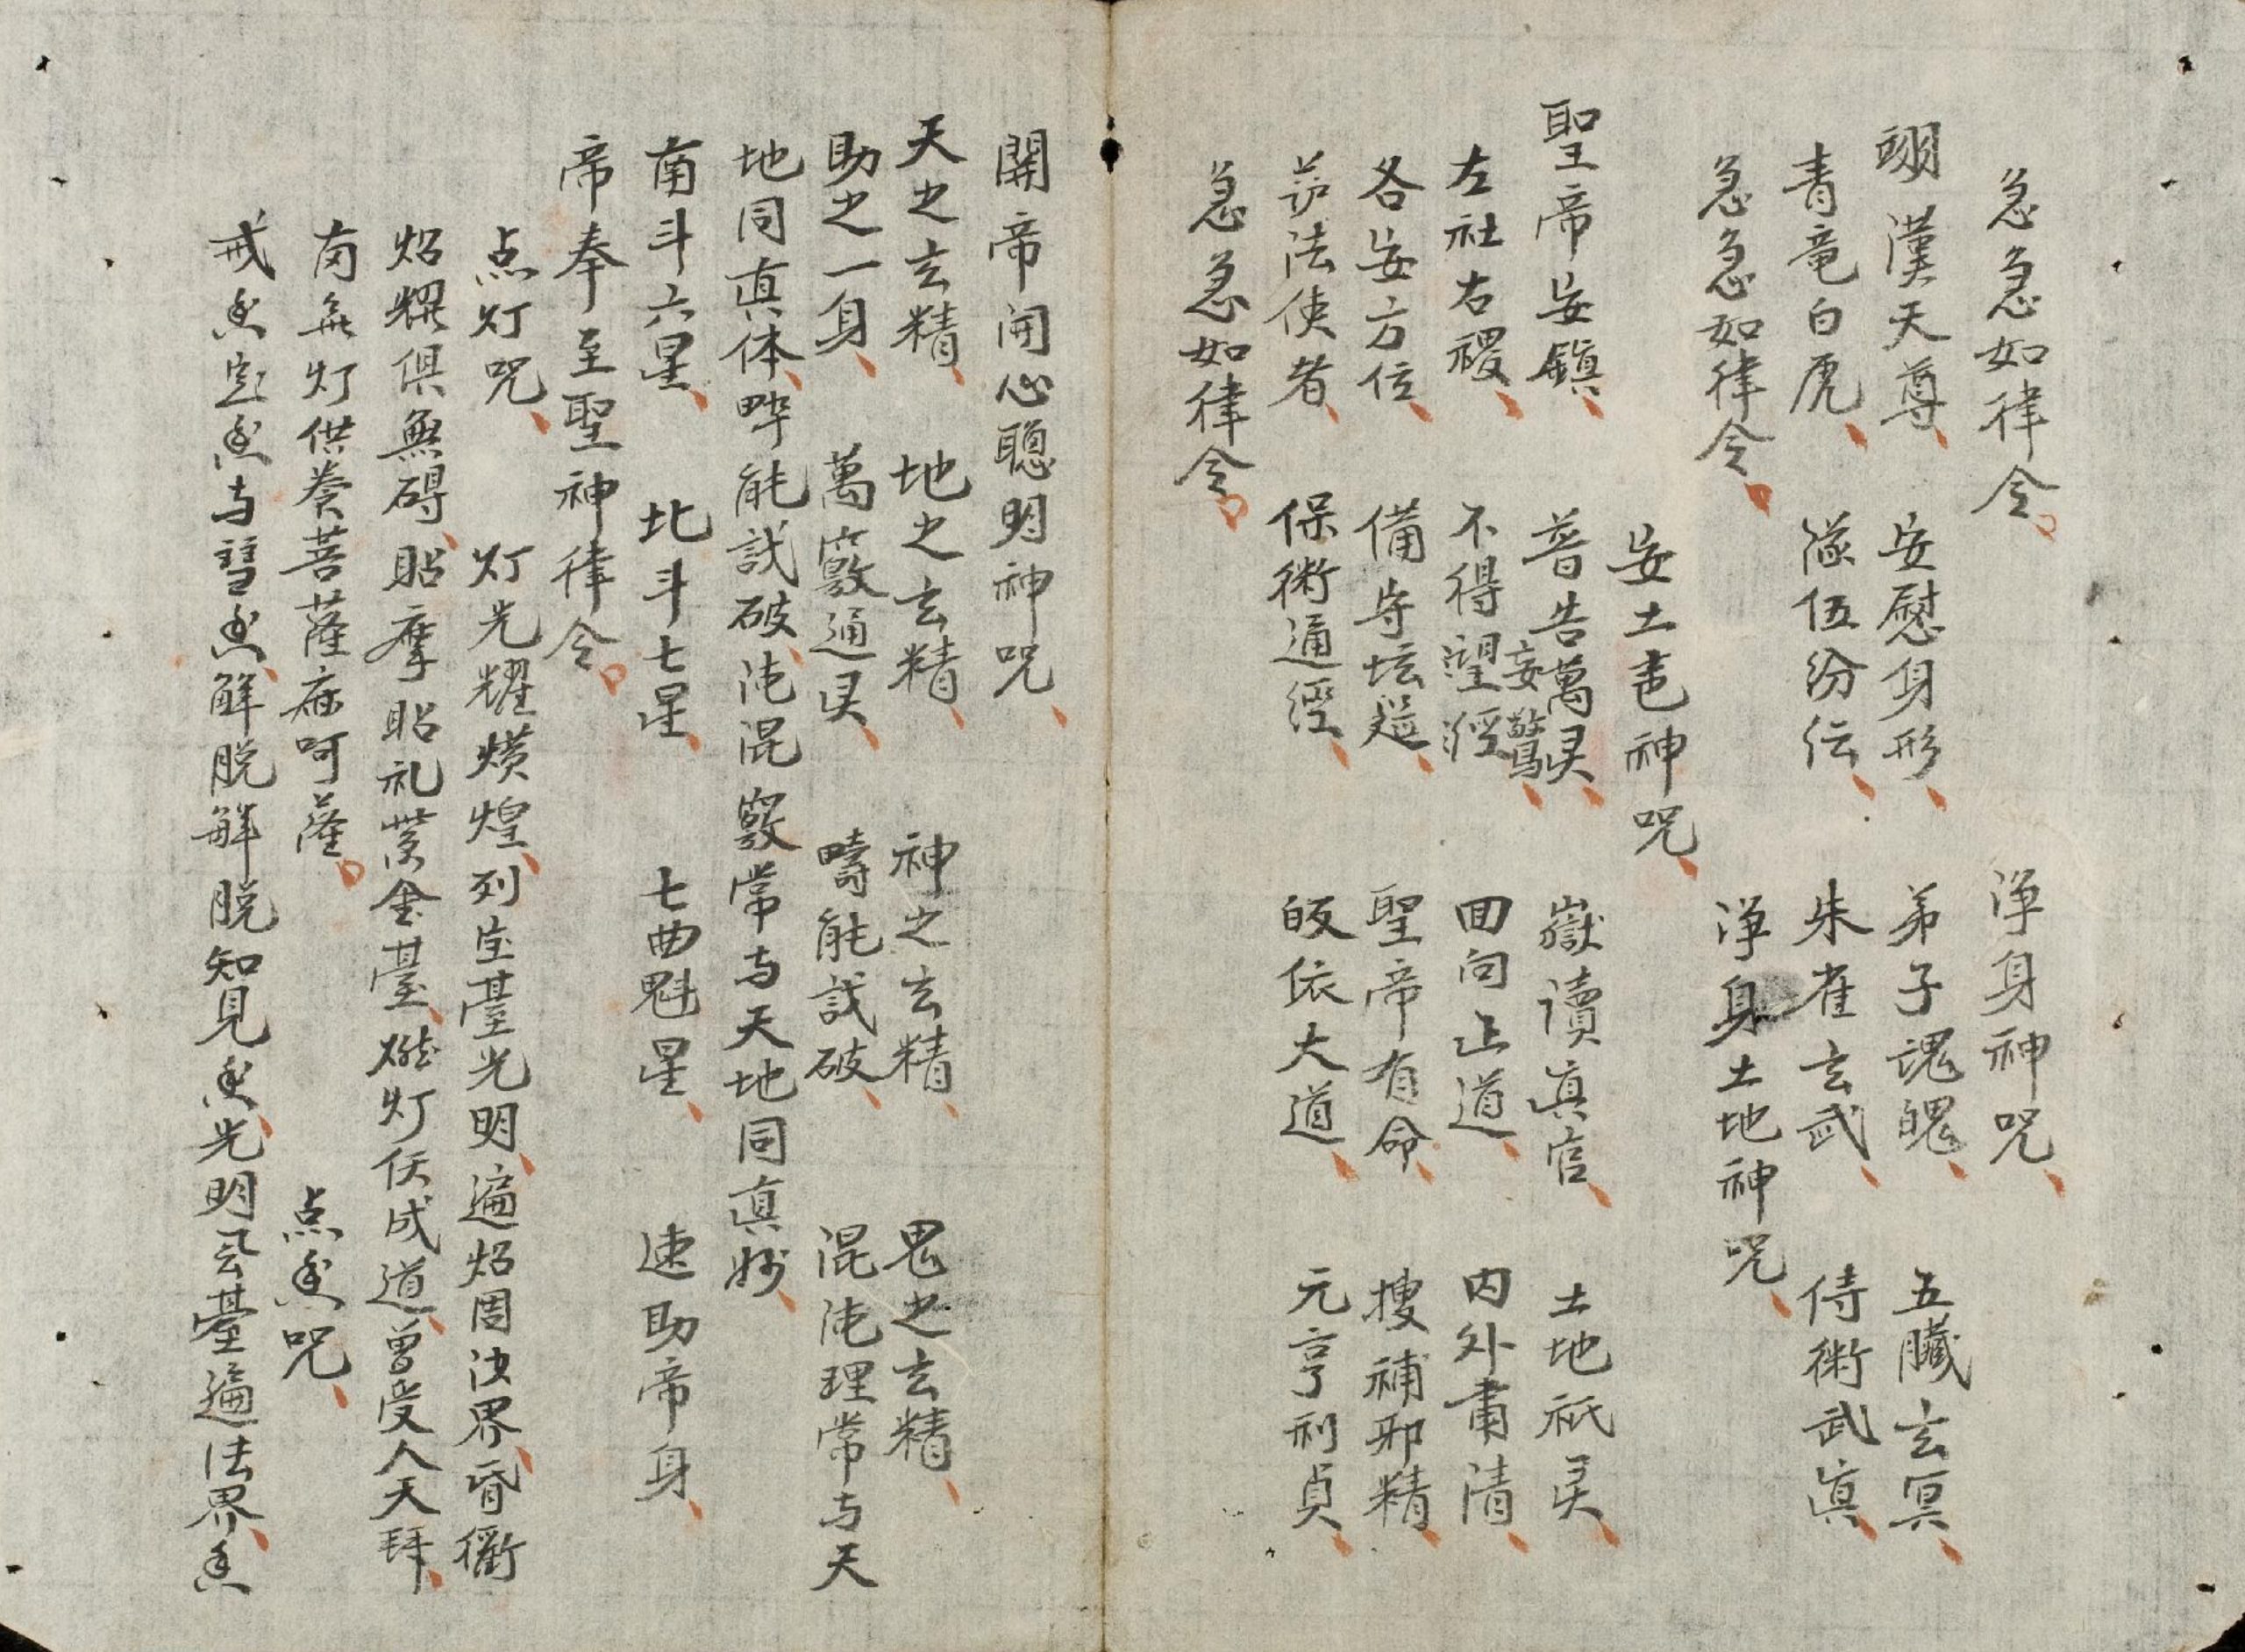 急急如律令。　淨身神咒、
翊漢天尊、安慰身形、弟子魂魄、五臟玄冥、
青竜白虎、隊伍汾伝、朱雀玄武、侍衛武真、
急急如律令。　淨身土地神咒、
安土神咒、
聖帝安鎮、普告萬灵、嶽讀真官、土地祇灵、
左社右稷、不得望経妄驚、回向正道、内外肅清、
各安方位、備守坛筵、聖帝有命、搜補邪精、
法使者、保術通經、皈依大道、元亨利貞、
急急如律令。
開帝開心聰明神咒、
天之玄精、地之玄精、神之玄精、鬼之玄精、
助之一身、萬竅通灵、疇能試破、混沌理常与天
地同真体、能試破、沌混竅常与天地同真妙、
南斗六星、北斗七星、七曲魁星、速助帝身、
帝奉至聖神律令。
点灯咒、灯光耀熿煌、列宝臺光明、遍炤周法界、昏衢
炤耀俱無碍、貽摩貽礼紫金臺、燃灯仸成道、曾受人天拜、
南無灯供養菩薩麻呵薩。　点香咒、
戒香定香与慧香、解脱解脱知見香、光明云臺遍法界、香